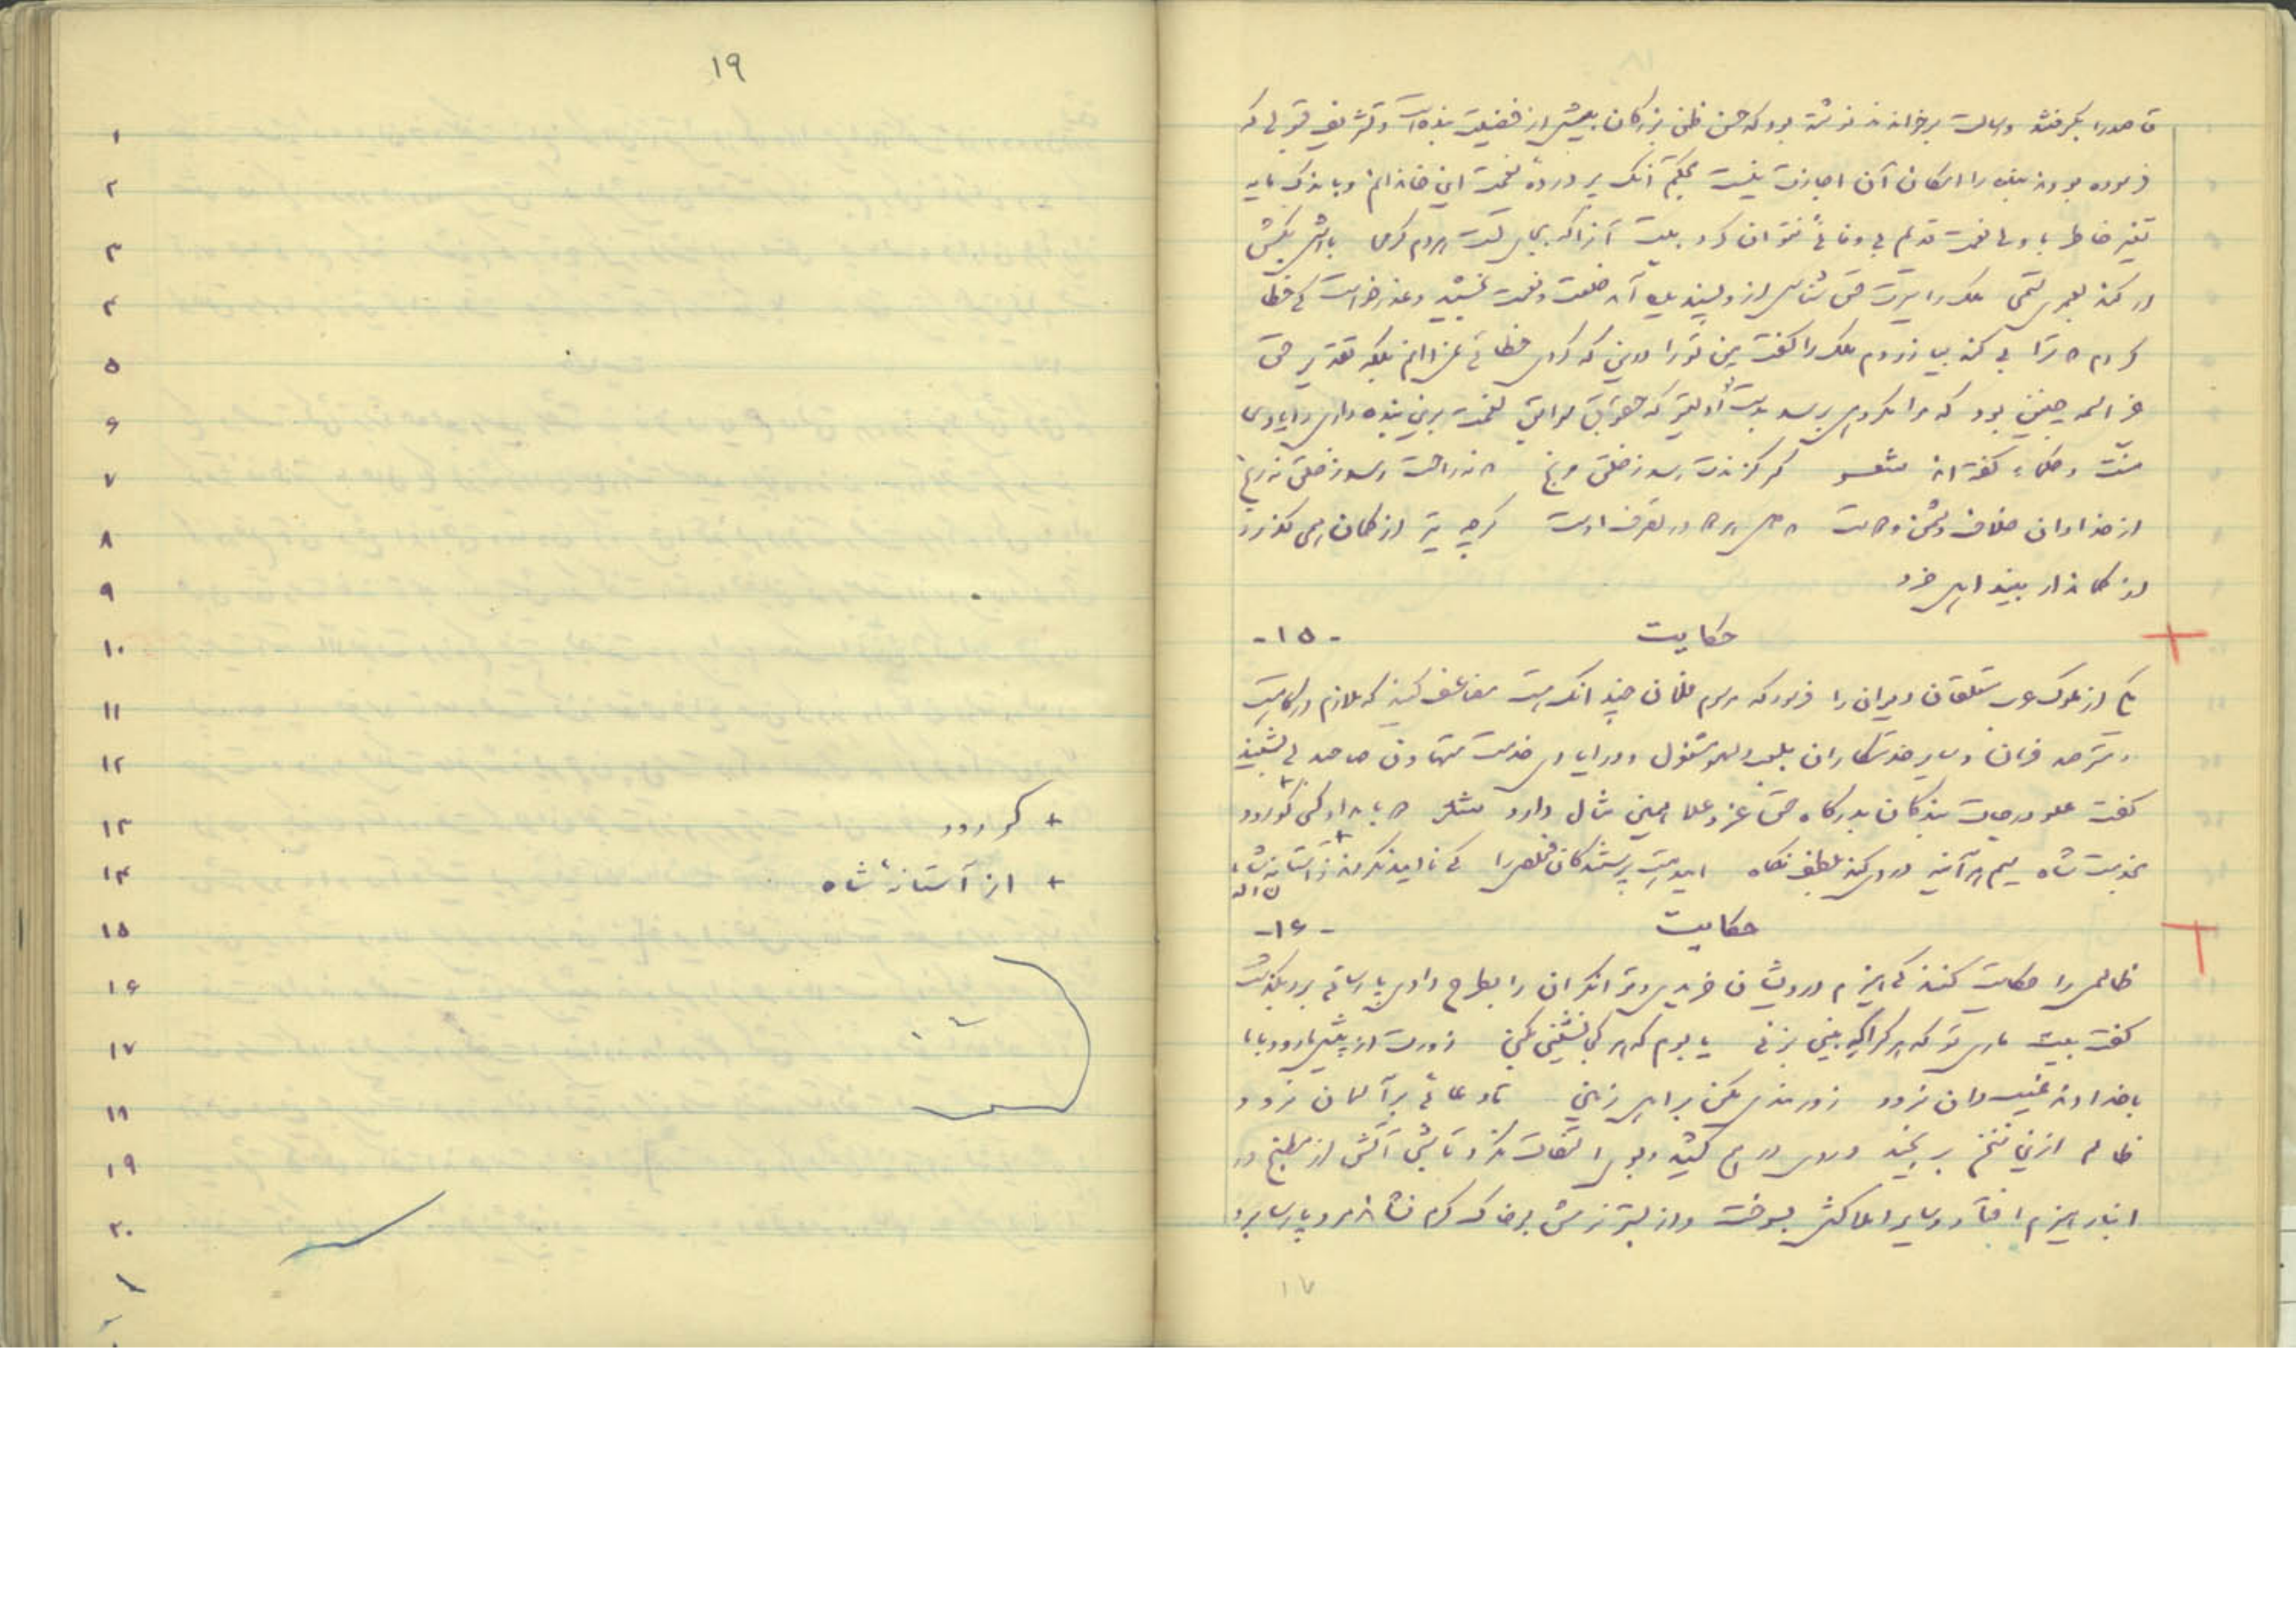 قاصد را بگرفتند و رسالت برخواندند نوشته بود که حسن ظن بزرگان بیش از فضیلت بنده است و تشریف قبولی که
فرموده بودند بنده را امکان آن اجازت نیست بحکم آنک پروردهٔ نعمت این خاندانم و باندک مایه
تغیر خاطر با ولی نعمت قدیم بی وفائی نتوان کرد بیت آنرا که بجای تست هردم کرمی عذرش بنه
ار کند بعمری ستمی ملک را سیرت حق شناسی از و پسندیده آمد خلعت و نعمت بخشید و عذر خواست که خطا
کردم و ترا بی گنه بیازردم ملک را گفت من تو را درین که کردی خطائی نمیدانم بلکه تقدیر حق
عز اسمه چنین بود که مرا مکروهی برسد بدست تو اولیتر که حقوق سوابق نعمت برین بنده داری و ایادی
منت و حکماء گفته اند شعر گر گزندت رسد ز خلق مرنج که نه راحت رسد ز خلق نه رنج
از خدا دان خلاف دشمن و دوست که دل هر دو در تصرف اوست گرچه تیر از کمان همی گذرد
از کماندار بیند اهل خرد
حکایت -۱۵-
یکی از ملوک عرب متعلقان دیوان را فرمود که مرسوم فلان چندانک هست مضاعف کنید که ملازم درگاهست
و مترصد فرمان و سایر خدمتکاران بلهو و لعب مشغول و در ادای خدمت متهاون صاحبدلی بشنید
گفت علو درجات بندگان بدرگاه حق عز و علا همین مثال دارد مثنوی دو بامداد گر کسی گو رود
بخدمت شاه سیم هر آینه در وی کند بلطف نگاه امید هست پرستندگان مخلص را که ناامید نگردند ز آستانه شاه
حکایت -۱۶-
ظالمی را حکایت کنند که هیزم درویشان خریدی و توانگران را بطرح دادی پارسائی برو بگذشت
گفت بیت ماری تو که هر کرا که بینی بزنی یا بوم که هر کجا نشینی بکنی زورت از پیش میرود با ما
با خداوند غیب دان نرود زورمندی مکن بر اهل زمین تا دعائی بر آسمان نرود
ظالم ازین سخن برنجید و روی درهم کشید و بوی التفات نکرد تا شبی آتش از مطبخ در
انبار هیزم افتاد و سایر املاکش بسوخت و از بستر نرمش بر خاک گرم نشاند مرد پارسا برو
۱۷
۱۹
۱
۲
۳
۴
۵
۶
۷
۸
۹
۱۰
۱۱
۱۲
۱۳ + گو رود
۱۴ + از آستانهٔ شاه
۱۵
۱۶
۱۷
۱۸
۱۹
۲۰